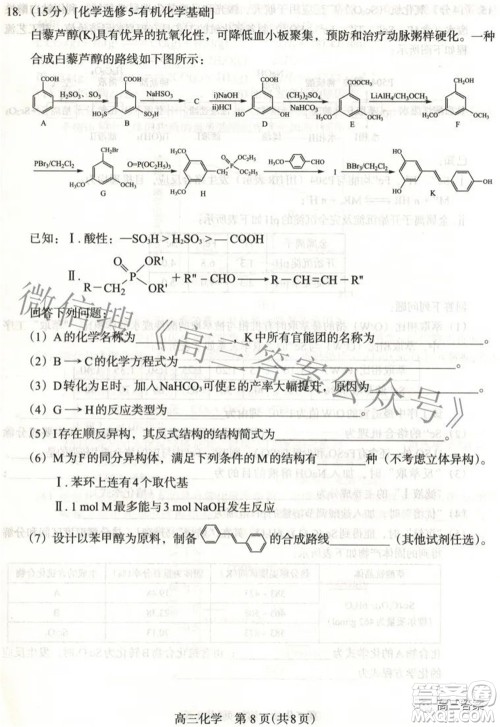 18. (15分) [化学选修5-有机化学基础]
白藜芦醇(K)具有优异的抗氧化性，可降低血小板聚集，预防和治疗动脉粥样硬化。一种
合成白藜芦醇的路线如下图所示：
COOH H₂SO₄, SO₃ COOH NaHSO₃ C i)NaOH ii)HCl COOH (CH₃)₂SO₄ NaHCO₃ COOCH₃ LiAlH₄/CH₃OCH₃ CH₂OH
HO₃S SO₃H HO OH H₃CO OCH₃ H₃CO OCH₃
A B D E F
PBr₃/CH₂Cl₂ CH₂Br O=P(OC₂H₅)₃ P OC₂H₅ OC₂H₅ CH₃O CHO I BBr₃/CH₂Cl₂ HO OH OH
H₃CO OCH₃ G H₃CO OCH₃ H K
已知：Ⅰ. 酸性：—SO₃H > H₂SO₃ > —COOH
Ⅱ. R—CH₂ P O OR' OR' + R"—CHO → R—CH=CH—R"
回答下列问题：
(1) A的化学名称为 ，K中所有官能团的名称为 。
(2) B→C的化学方程式为 。
(3) D转化为E时，加入NaHCO₃可使E的产率大幅提升，原因为 。
(4) G→H的反应类型为 。
(5) I存在顺反异构，其反式结构的结构简式为 。
(6) M为F的同分异构体，满足下列条件的M的结构有 种（不考虑立体异构）。
Ⅰ. 苯环上连有4个取代基
Ⅱ. 1 mol M最多能与3 mol NaOH发生反应
(7) 设计以苯甲醇为原料，制备 的合成路线 （其他试剂任选）。
微信搜《高三答案公众号》
高三化学 第8页(共8页)
高三答案